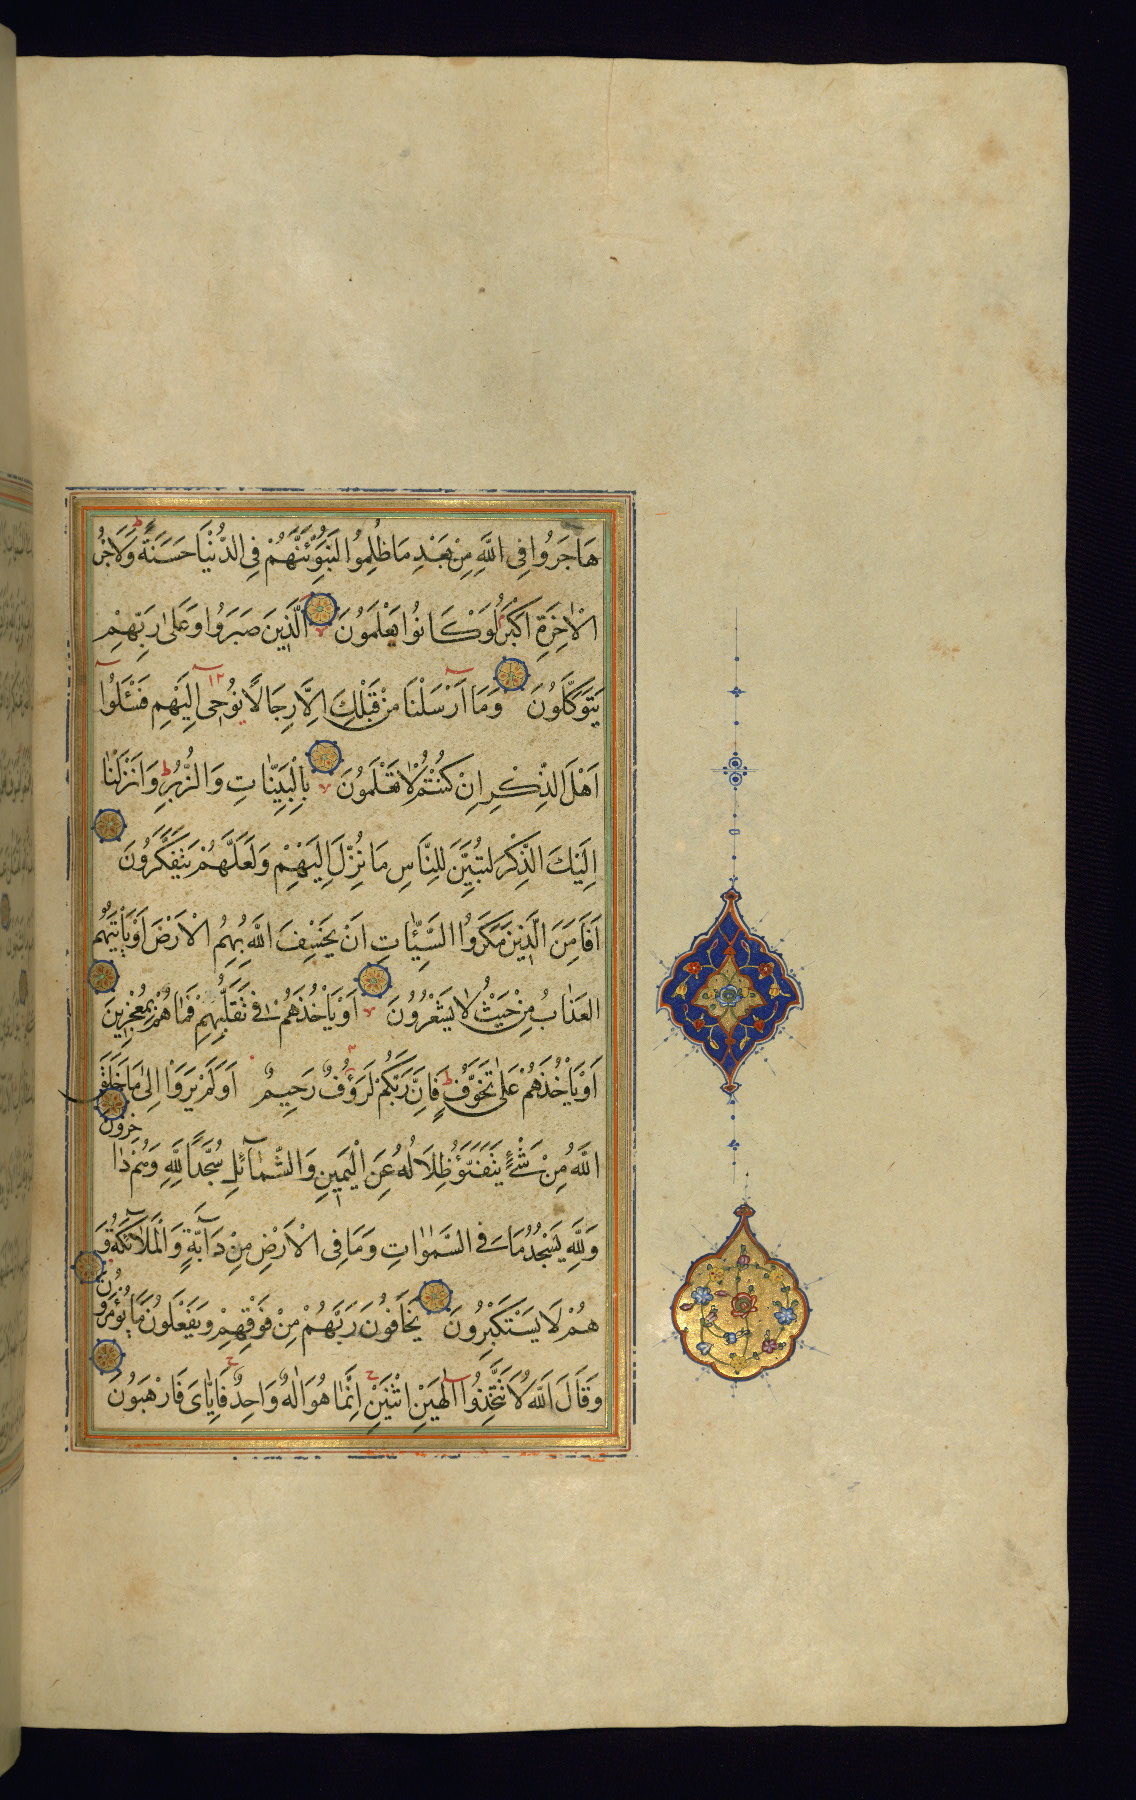 هَاجَرُوا فِى اللّٰهِ مِنْ بَعْدِ مَا ظُلِمُوا لَنُبَوِّئَنَّهُمْ فِى الدُّنْيَا حَسَنَةً وَلَاَجْرُ
الْاٰخِرَةِ اَكْبَرُ لَوْ كَانُوا يَعْلَمُونَ اَلَّذِينَ صَبَرُوا وَعَلٰى رَبِّهِمْ
يَتَوَكَّلُونَ وَمَا اَرْسَلْنَا مِنْ قَبْلِكَ اِلَّا رِجَالًا نُوحِى اِلَيْهِمْ فَسْئَلُوا
اَهْلَ الذِّكْرِ اِنْ كُنْتُمْ لَا تَعْلَمُونَ بِالْبَيِّنَاتِ وَالزُّبُرِ وَاَنْزَلْنَا
اِلَيْكَ الذِّكْرَ لِتُبَيِّنَ لِلنَّاسِ مَا نُزِّلَ اِلَيْهِمْ وَلَعَلَّهُمْ يَتَفَكَّرُونَ
اَفَاَمِنَ الَّذِينَ مَكَرُوا السَّيِّئَاتِ اَنْ يَخْسِفَ اللّٰهُ بِهِمُ الْاَرْضَ اَوْ يَاْتِيَهُمُ
الْعَذَابُ مِنْ حَيْثُ لَا يَشْعُرُونَ اَوْ يَاْخُذَهُمْ فِى تَقَلُّبِهِمْ فَمَا هُمْ بِمُعْجِزِينَ
اَوْ يَاْخُذَهُمْ عَلٰى تَخَوُّفٍ فَاِنَّ رَبَّكُمْ لَرَؤُفٌ رَحِيمٌ اَوَلَمْ يَرَوْا اِلٰى مَا خَلَقَ
اللّٰهُ مِنْ شَىْءٍ يَتَفَيَّؤُ ظِلَالُهُ عَنِ الْيَمِينِ وَالشَّمَائِلِ سُجَّدًا لِلّٰهِ وَهُمْ دَاخِرُونَ
وَلِلّٰهِ يَسْجُدُ مَا فِى السَّمٰوَاتِ وَمَا فِى الْاَرْضِ مِنْ دَابَّةٍ وَالْمَلَائِكَةُ وَ
هُمْ لَا يَسْتَكْبِرُونَ يَخَافُونَ رَبَّهُمْ مِنْ فَوْقِهِمْ وَيَفْعَلُونَ مَا يُؤْمَرُونَ
وَقَالَ اللّٰهُ لَا تَتَّخِذُوا اِلٰهَيْنِ اثْنَيْنِ اِنَّمَا هُوَ اِلٰهٌ وَاحِدٌ فَاِيَّاىَ فَارْهَبُونَ